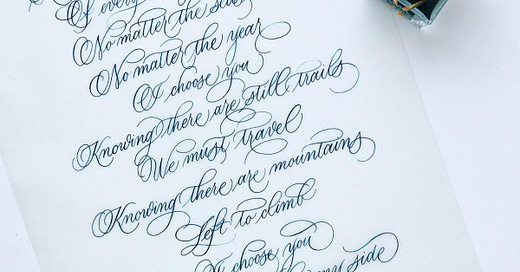 Of every
No matter the
No matter the year
I choose you
Knowing there are still trails
We must travel
Knowing there are mountains
Left to climb
I choose you
my side